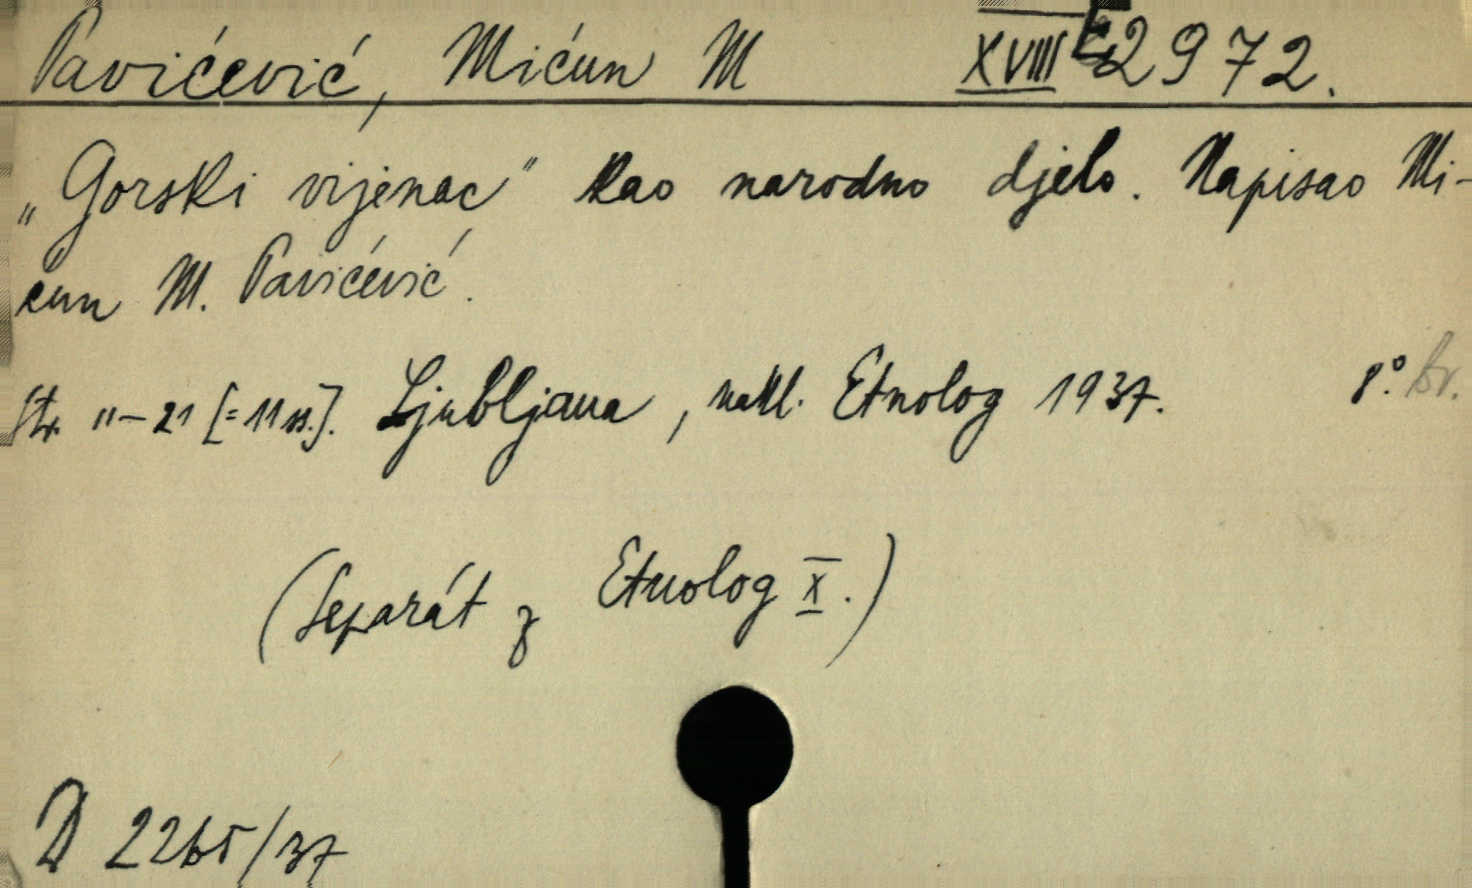 Pavićević, Mićun M XVIII E 2972.
„Gorski vijenac" kao narodno djelo. Napisao Mi-
ćun M. Pavićević.
Str. 11-21 [=11 ss.]. Ljubljana, nakl. Etnolog 1937. 8.° br.
(Separát z Etnolog X.)
D 2265/37